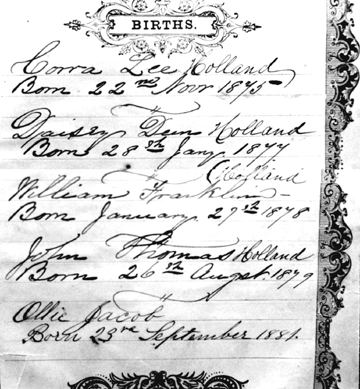 BIRTHS.
Corra Lee Holland
Born 22nd Novr 1875
Daisey Dun Holland
Born 28th Jany 1877
Holland
William Franklin
Born January 27th 1878
John Thomas Holland
Born 26th Augst. 1879
Ollie Jacob
Born 23rd September 1881.